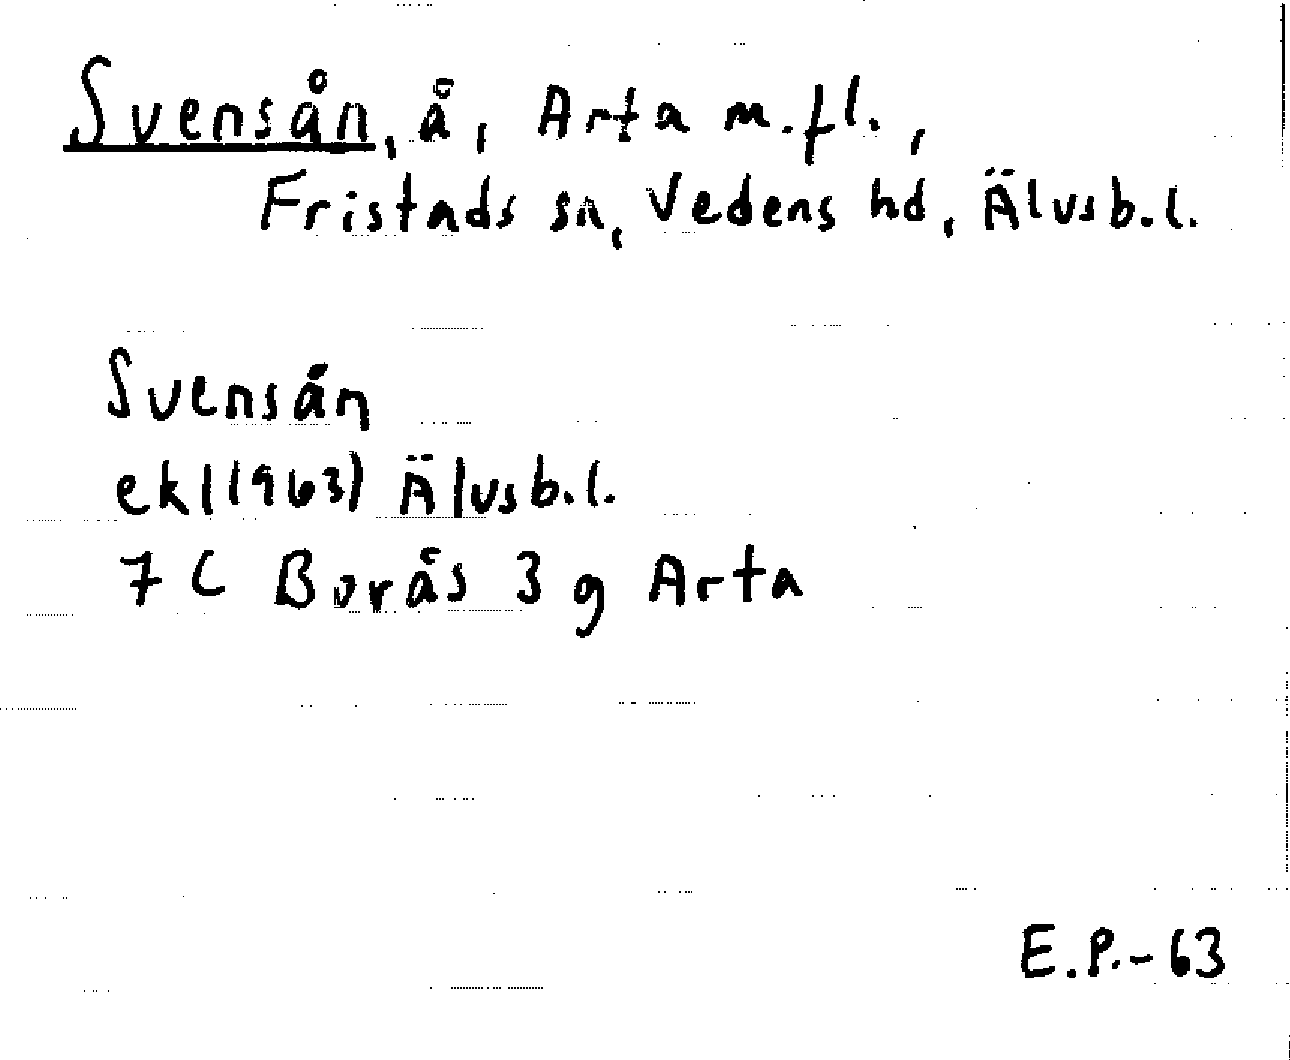 Svensån, å, Arta m.fl.,
Fristads sn, Vedens hd, Älvsb.l.
Svensån
ek(1963) Älvsb.l.
7 C Borås 3 g Arta
E.P.-63